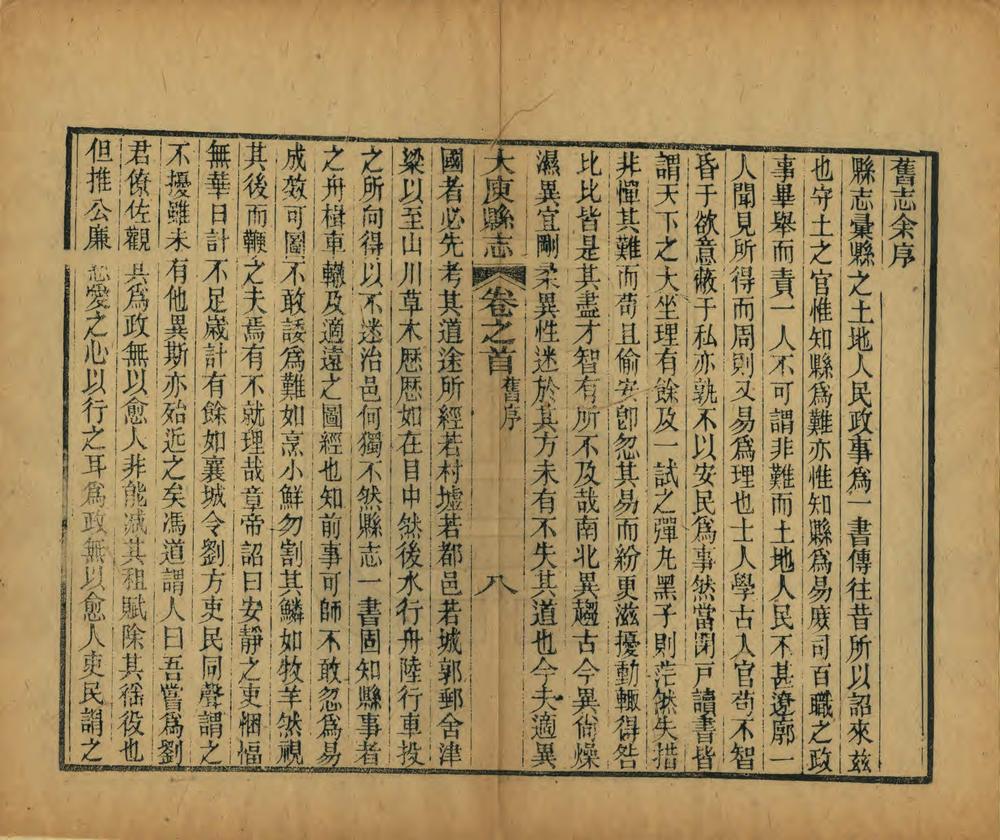 舊志余序
縣志彙縣之土地人民政事爲一書傳往昔所以詔來兹
也守土之官惟知縣爲難亦惟知縣爲易庶司百職之政
事畢舉而責一人不可謂非難而土地人民不甚遼廓一
人聞見所得而周則又易爲理也士人學古入官苟不智
昏于欲意蔽于私亦孰不以安民爲事然當閉戸讀書皆
謂天下之大坐理有餘及一試之彈丸黑子則茫然失措
非憚其難而苟且偷安卽忽其易而紛更滋擾動輒得咎
比比皆是其盡才智有所不及哉南北異趨古今異尚燥
濕異宜剛柔異性迷於其方未有不失其道也今夫適異
大庾縣志 卷之首 舊序 八
國者必先考其道途所經若村墟若都邑若城郭郵舍津
梁以至山川草木歷歷如在目中然後水行舟陸行車投
之所向得以不迷治邑何獨不然縣志一書固知縣事者
之舟楫車轍及適遠之圖經也知前事可師不敢忽爲易
成效可圖不敢諉爲難如烹小鮮勿割其鱗如牧羊然視
其後而鞭之夫焉有不就理哉章帝詔曰安靜之吏悃愊
無華日計不足歲計有餘如襄城令劉方吏民同聲謂之
不擾雖未有他異斯亦殆近之矣馮道謂人曰吾嘗爲劉
君僚佐觀其爲政無以愈人非能減其租賦除其徭役也
但推公廉慈愛之心以行之耳爲政無以愈人吏民謂之